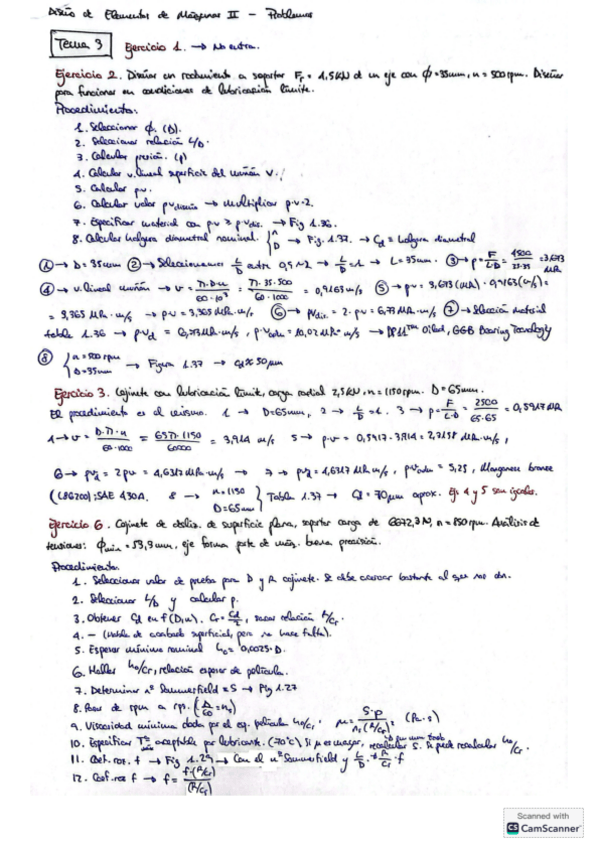 Diseño de Elementos de Máquinas II - Problemas
Tema 3 Ejercicio 1. → No entra.
Ejercicio 2. Diseñar un rodamiento a soportar Fr = 1,5kN de un eje con ϕ = 35mm, n = 500 rpm. Diseñar
para funcionar en condiciones de lubricación límite.
Procedimiento:
1. Seleccionar ϕ. (D).
2. Seleccionar relación L/D.
3. Calcular presión. (p)
4. Calcular v. lineal superficie del muñón v.
5. Calcular pv.
6. Calcular valor pv diseño → multiplicar p·v·2.
7. Especificar material con pv ≥ pv dis. → Fig 1.36.
8. Calcular holgura diametral nominal. { n D → Fig. 1.37. → Cd = holgura diametral
① → D = 35mm ② → Seleccionamos L/D entre 0,5 ~ 2 → L/D = 1 → L = 35mm. ③ → p = F/L·D = 1500/35·35
④ → v. lineal muñón → v = π·D·n/60·10³ = π·35·500/60·1000 = 0,9163 m/s ⑤ → pv =
→ pv = ⑥ → pv dis. = 2·pv = ⑦ → Selección material
tabla 1.36 → pv d = → DP11™ Oiled, GGB Bearing Tecnology
⑧ { n = 500 rpm D = 35mm → Figura 1.37 → Cd ≈ 50 μm
Ejercicio 3. Cojinete con lubricación límite, carga radial 2,5kN, n = 1150 rpm. D = 65mm.
El procedimiento es el mismo. 1 → D = 65mm, 2 → L/D = 1. 3 → p = F/L·D = 2500/65·65 = 0,5917 MPa
4 → v = D·π·n/60·1000 = 65π·1150/60000 = 3,914 m/s 5 → p·v =
6 → pv d = 2pv = 4,6317 MPa·m/s → 7 → pv d = 4,6317 MPa·m/s, = 5,25, Manganese bronze
(C86200) : SAE 430A. 8 → n = 1150 D = 65mm } Tabla 1.37 → Cd = 70 μm aprox. Ejs 4 y 5 son iguales.
Ejercicio 6. Cojinete de desliz. de superficie plana, soportar carga de 6672,3 N, n = 850 rpm. Análisis de
tensiones: ϕ min = 53,9 mm, eje forma parte de máq. buena precisión.
Procedimiento:
1. Seleccionar valor de prueba para D y R cojinete. Se debe acercar bastante al que nos dan.
2. Seleccionar L/D y calcular p.
3. Obtener Cd en f(D,n). Cr = Cd/2, sacar relación R/Cr.
4. - (Habla de acabado superficial, pero no hace falta).
5. Espesor mínimo nominal h₀ = 0,0025·D.
6. Hallar h₀/Cr, relación espesor de película.
7. Determinar nº Sommerfield ≡ S → Fig 1.27
8. Pasar de rpm a rps. (n/60 = ns)
9. Viscosidad mínima dada por el esp. película h₀/Cr. μ = S·p/ns(R/Cr)² (Pa·s)
10. Especificar Tª aceptable por lubricante. (70°C) Si μ es mayor, recalcular S. Se puede recalcular h₀/Cr.
11. Coef. roz. f → Fig 1.29 → Con el nº Sommerfield y L/D → R/Cr · f
12. Coef. roz f → f = f·(R/Cr)/(R/Cr)
Scanned with
CS CamScanner